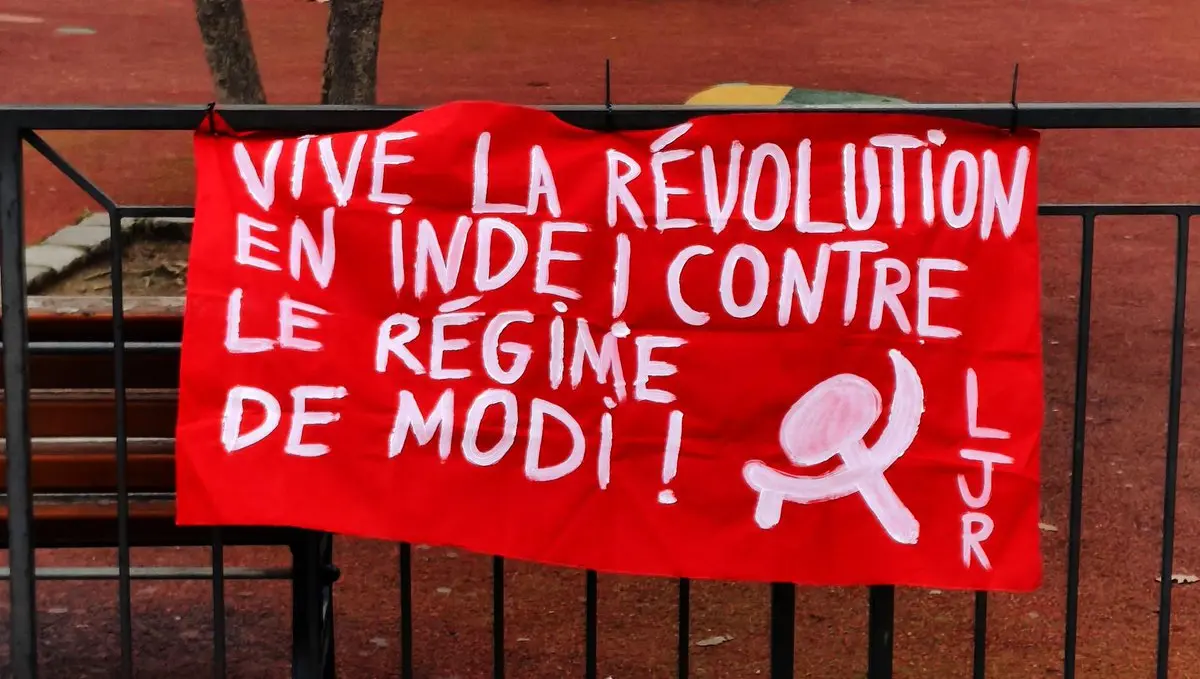 VIVE LA RÉVOLUTION
EN INDE ! CONTRE
LE RÉGIME
DE MODI !
LJR